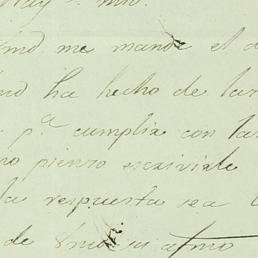 mio.
md me mande el
md ha hecho de la
pª cumplir con la
no pienso escrivirle
la respuesta sea
de Vmd su atmo